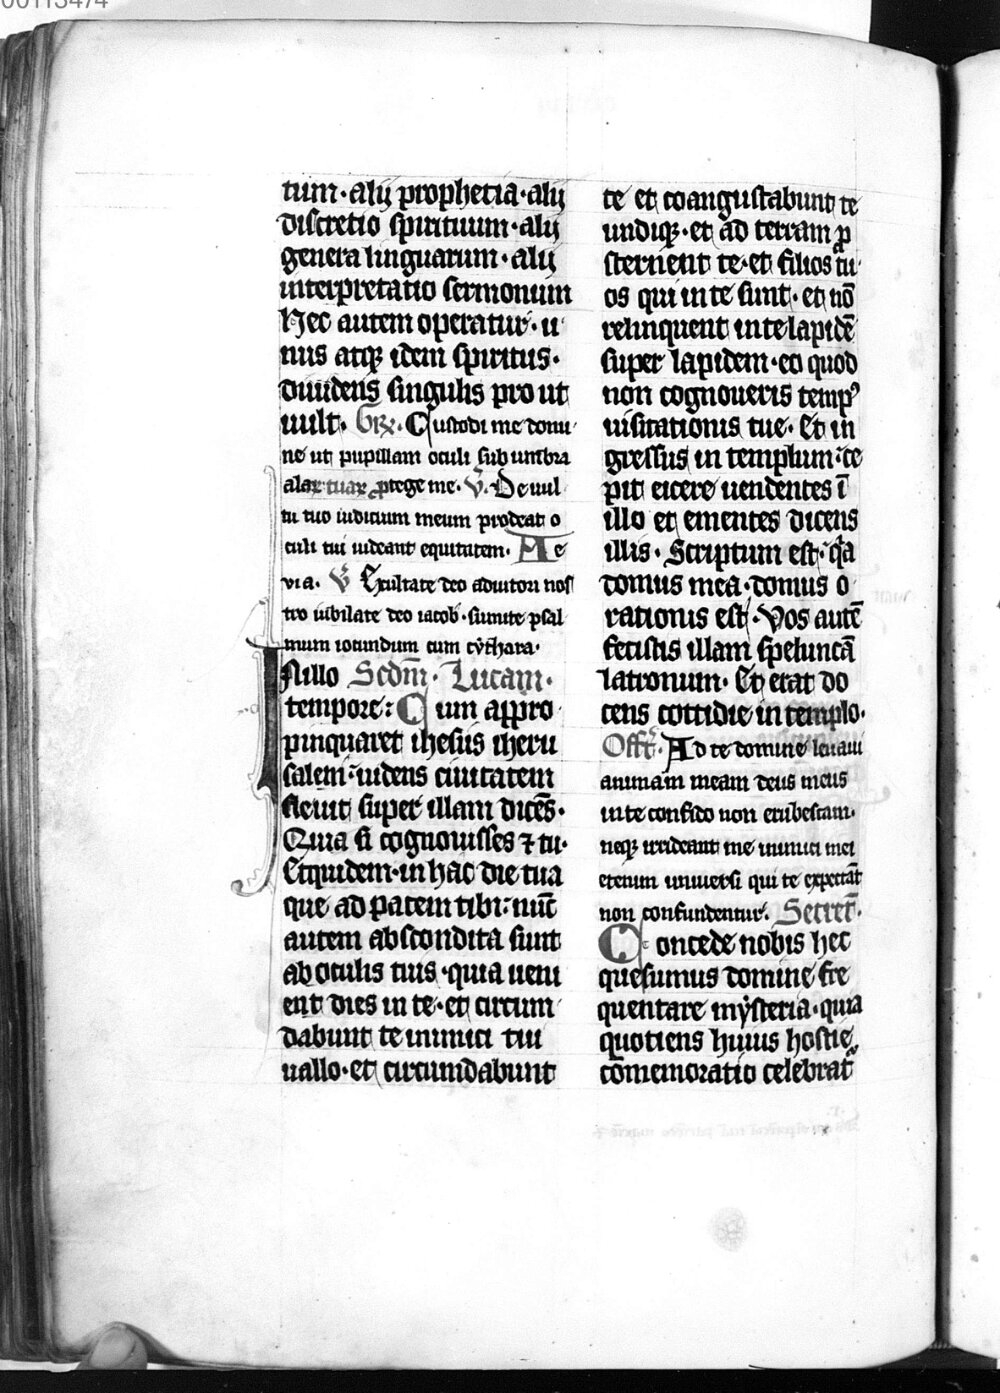 00113474
tum·alij prophetia·alij
discretio spirituum·alij
genera linguarum·alij
interpretatio sermonum
Hec autem operatur·u
nus atqꝫ idem spiritus·
diuidens singulis pro ut
uult. Gr̃. Custodi me domi
ne ut pupillam oculi sub umbra
alaꝝ tuaꝝ ꝓtege me. V̾. De uul
tu tuo iudicium meum prodeat o
culi tui uideant equitatem. Ae
via. V̾ Exultate deo adiutori nos
tro iubilate deo iacob·sumite psal
mum iocundum cum cythara·
In illo Scdm̄. Lucam.
tempore: Cum appro
pinquaret ihesus iheru
salem: uidens ciuitatem
fleuit super illam dicēs.
Quia si cognouisses ⁊ tu.
Et quidem·in hac die tua
que ad pacem tibi: nūc
autem abscondita sunt
ab oculis tuis·quia ueni
ent dies in te·et circum
dabunt te inimici tui
uallo·et circumdabunt
te et coangustabunt te
undiqꝫ·et ad terram ꝓ
sternent te·et filios tu
os qui in te sunt·et nō
relinquent in te lapidē
super lapidem·eo quod
non cognoueris tempꝰ
uisitationis tue. Et in
gressus in templum: ce
pit eicere uendentes ī
illo et ementes dicens
illis. Scriptum est: q̄a
domus mea·domus o
rationis est. Vos autē
fecistis illam speluncā
latronum. Et erat do
cens cottidie in templo.
Offr̄. Ad te domine leuaui
animam meam deus meus
in te confido non erubescam·
neqꝫ irrideant me inimici mei
etenim uniuersi qui te expectāt
non confundentur. Secret̄.
Concede nobis hec
quesumus domine fre
quentare mysteria·quia
quotiens huius hostie
cōmemoratio celebrat᷑